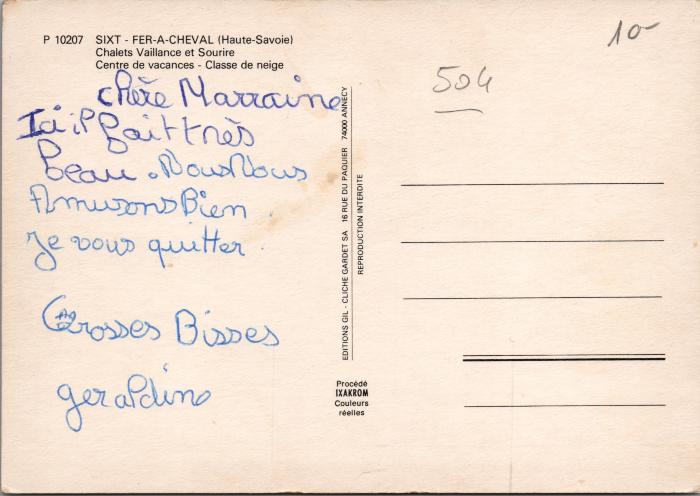 P 10207 SIXT - FER-A-CHEVAL (Haute-Savoie)
Chalets Vaillance et Sourire
Centre de vacances - Classe de neige
chère Marraine
Ici il fait très
beau. Nous Nous
Amusons Bien.
Je vous quitter.
Grosses Bisses
geraldine
EDITIONS GIL - CLICHE GARDET SA 16 RUE DU PAQUIER 74000 ANNECY
REPRODUCTION INTERDITE
Procédé
IXAKROM
Couleurs
réelles
504
10-